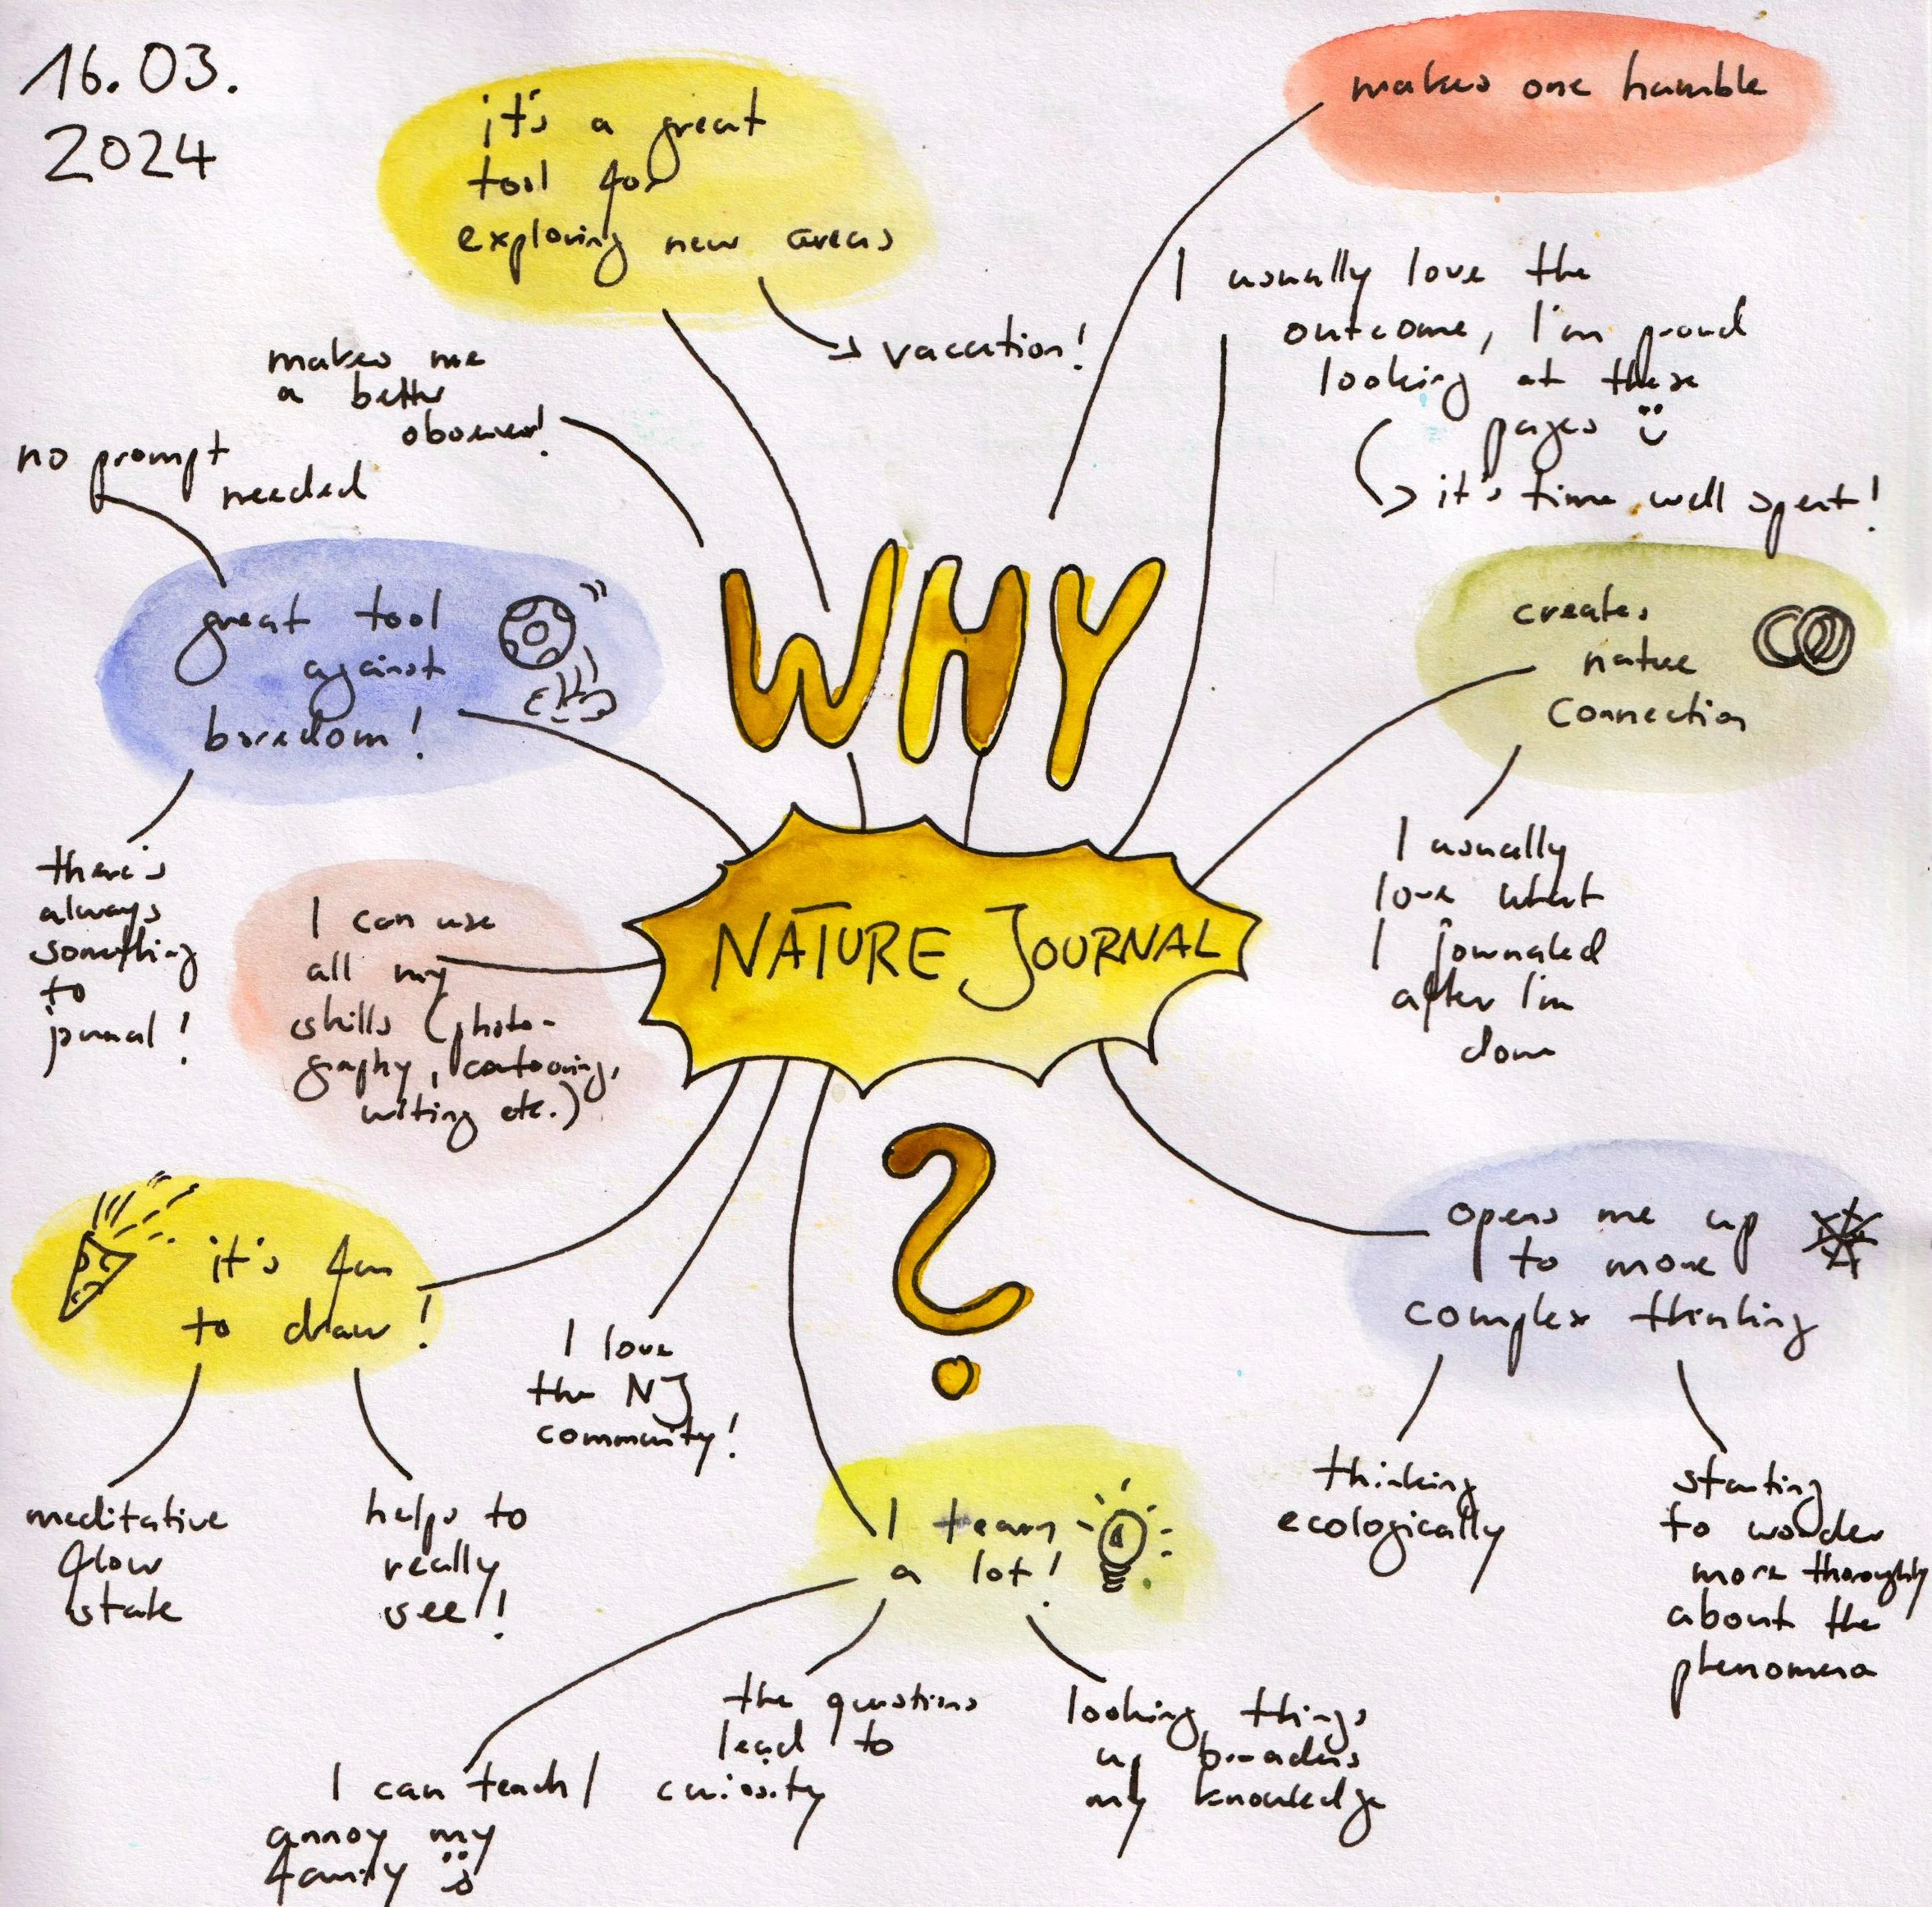 16.03.
2024
it's a great
tool for
exploring new areas
vacation!
makes one humble
I usually love the
outcome, I'm proud
looking at these
pages
it's time well spent!
makes me
a better
observer!
no prompt
needed
great tool
against
boredom!
there's
always
something
to
journal!
WHY
NATURE JOURNAL
?
creates
nature
connection
I usually
love what
I journaled
after I'm
done
I can use
all my
skills (photo-
graphy, cartooning,
writing etc.)
it's fun
to draw!
meditative
flow
state
helps to
really
see!
I love
the NJ
community!
I learn
a lot!
I can teach/
annoy my
family
the questions
lead to
curiosity
looking things
up broadens
my knowledge
opens me up
to more
complex thinking
thinking
ecologically
starting
to wonder
more thoroughly
about the
phenomena